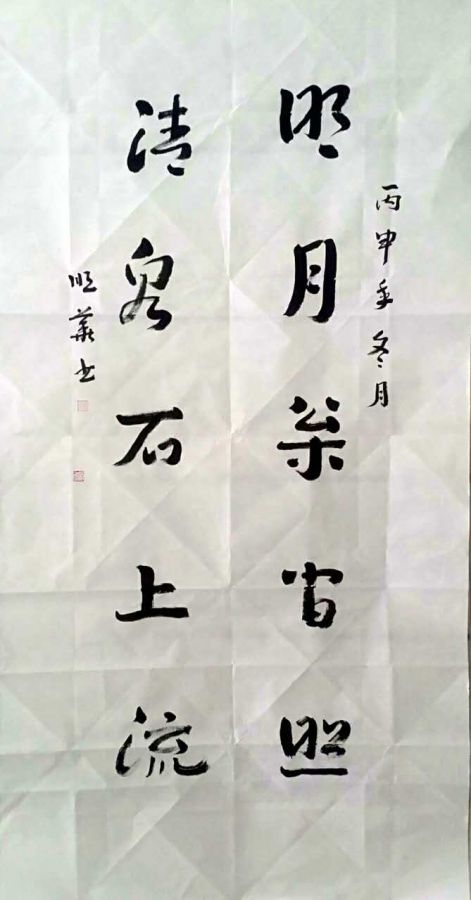 丙申年冬月
明月松间照
清泉石上流
華书